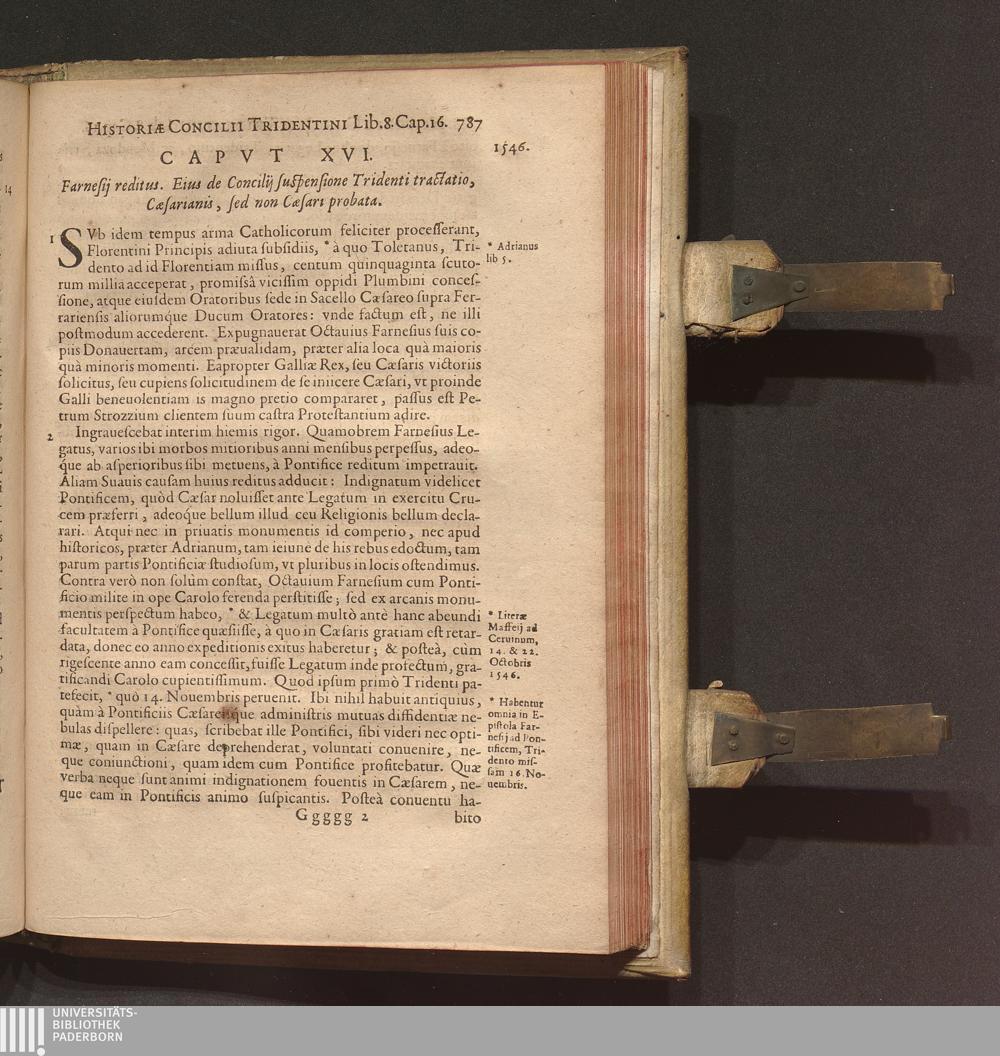 HISTORIÆ CONCILII TRIDENTINI Lib.8.Cap.16. 787
CAPVT XVI.
1546.
Farnesij reditus. Eius de Concilij suspensione Tridenti tractatio,
Cæsarianis, sed non Cæsari probata.
1 SVb idem tempus arma Catholicorum feliciter processerant,
Florentini Principis adiuta subsidiis, * à quo Toletanus, Tri-
dento ad id Florentiam missus, centum quinquaginta scuto-
rum millia acceperat, promissâ vicissim oppidi Plumbini conces-
sione, atque eiusdem Oratoribus sede in Sacello Cæsareo supra Fer-
rariensis aliorumque Ducum Oratores: vnde factum est, ne illi
postmodum accederent. Expugnauerat Octauius Farnesius suis co-
piis Donauertam, arcem præualidam, præter alia loca quà maioris
quà minoris momenti. Eapropter Galliæ Rex, seu Cæsaris victoriis
solicitus, seu cupiens solicitudinem de se iniicere Cæsari, vt proinde
Galli beneuolentiam is magno pretio compararet, passus est Pe-
trum Strozzium clientem suum castra Protestantium adire.
2 Ingrauescebat interim hiemis rigor. Quamobrem Farnesius Le-
gatus, varios ibi morbos mitioribus anni mensibus perpessus, adeo-
que ab asperioribus sibi metuens, à Pontifice reditum impetrauit.
Aliam Suauis causam huius reditus adducit: Indignatum videlicet
Pontificem, quòd Cæsar noluisset ante Legatum in exercitu Cru-
cem præferri, adeoque bellum illud ceu Religionis bellum decla-
rari. Atqui nec in priuatis monumentis id comperio, nec apud
historicos, præter Adrianum, tam ieiunè de his rebus edoctum, tam
parum partis Pontificiæ studiosum, vt pluribus in locis ostendimus.
Contra verò non solùm constat, Octauium Farnesium cum Ponti-
ficio milite in ope Carolo ferenda perstitisse; sed ex arcanis monu-
mentis perspectum habeo, * & Legatum multò antè hanc abeundi
facultatem à Pontifice quæsiisse, à quo in Cæsaris gratiam est retar-
data, donec eo anno expeditionis exitus haberetur; & posteà, cùm
rigescente anno eam concessit, fuisse Legatum inde profectum, gra-
tificandi Carolo cupientissimum. Quod ipsum primò Tridenti pa-
tefecit, * quò 14. Nouembris peruenit. Ibi nihil habuit antiquius,
quàm à Pontificiis Cæsareisque administris mutuas diffidentiæ ne-
bulas dispellere: quas, scribebat ille Pontifici, sibi videri nec opti-
mæ, quam in Cæsare deprehenderat, voluntati conuenire, ne-
que coniunctioni, quam idem cum Pontifice profitebatur. Quæ
verba neque sunt animi indignationem fouentis in Cæsarem, ne-
que eam in Pontificis animo suspicantis. Posteà conuentu ha-
Ggggg 2 bito
* Adrianus
lib 5.
* Literæ
Maffeij ad
Ceruinum,
14. & 22.
Octobris
1546.
* Habentur
omnia in E-
pistola Far-
nesij ad Pon-
tificem, Tri-
dento mis-
sam 16. No-
uembris.
14
UNIVERSITÄTS-
BIBLIOTHEK
PADERBORN